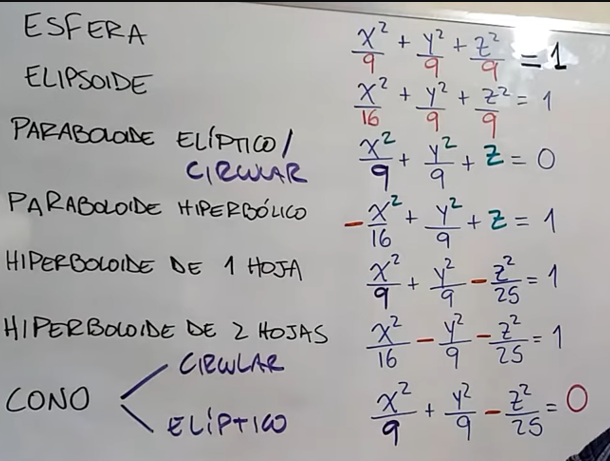 ESFERA x²/9 + y²/9 + z²/9 = 1
ELIPSOIDE x²/16 + y²/9 + z²/9 = 1
PARABOLOIDE ELÍPTICO/ x²/9 + y²/9 + z = 0
CIRCULAR
PARABOLOIDE HIPERBÓLICO -x²/16 + y²/9 + z = 1
HIPERBOLOIDE DE 1 HOJA x²/9 + y²/9 - z²/25 = 1
HIPERBOLOIDE DE 2 HOJAS x²/16 - y²/9 - z²/25 = 1
CIRCULAR
CONO x²/9 + y²/9 - z²/25 = 0
ELÍPTICO